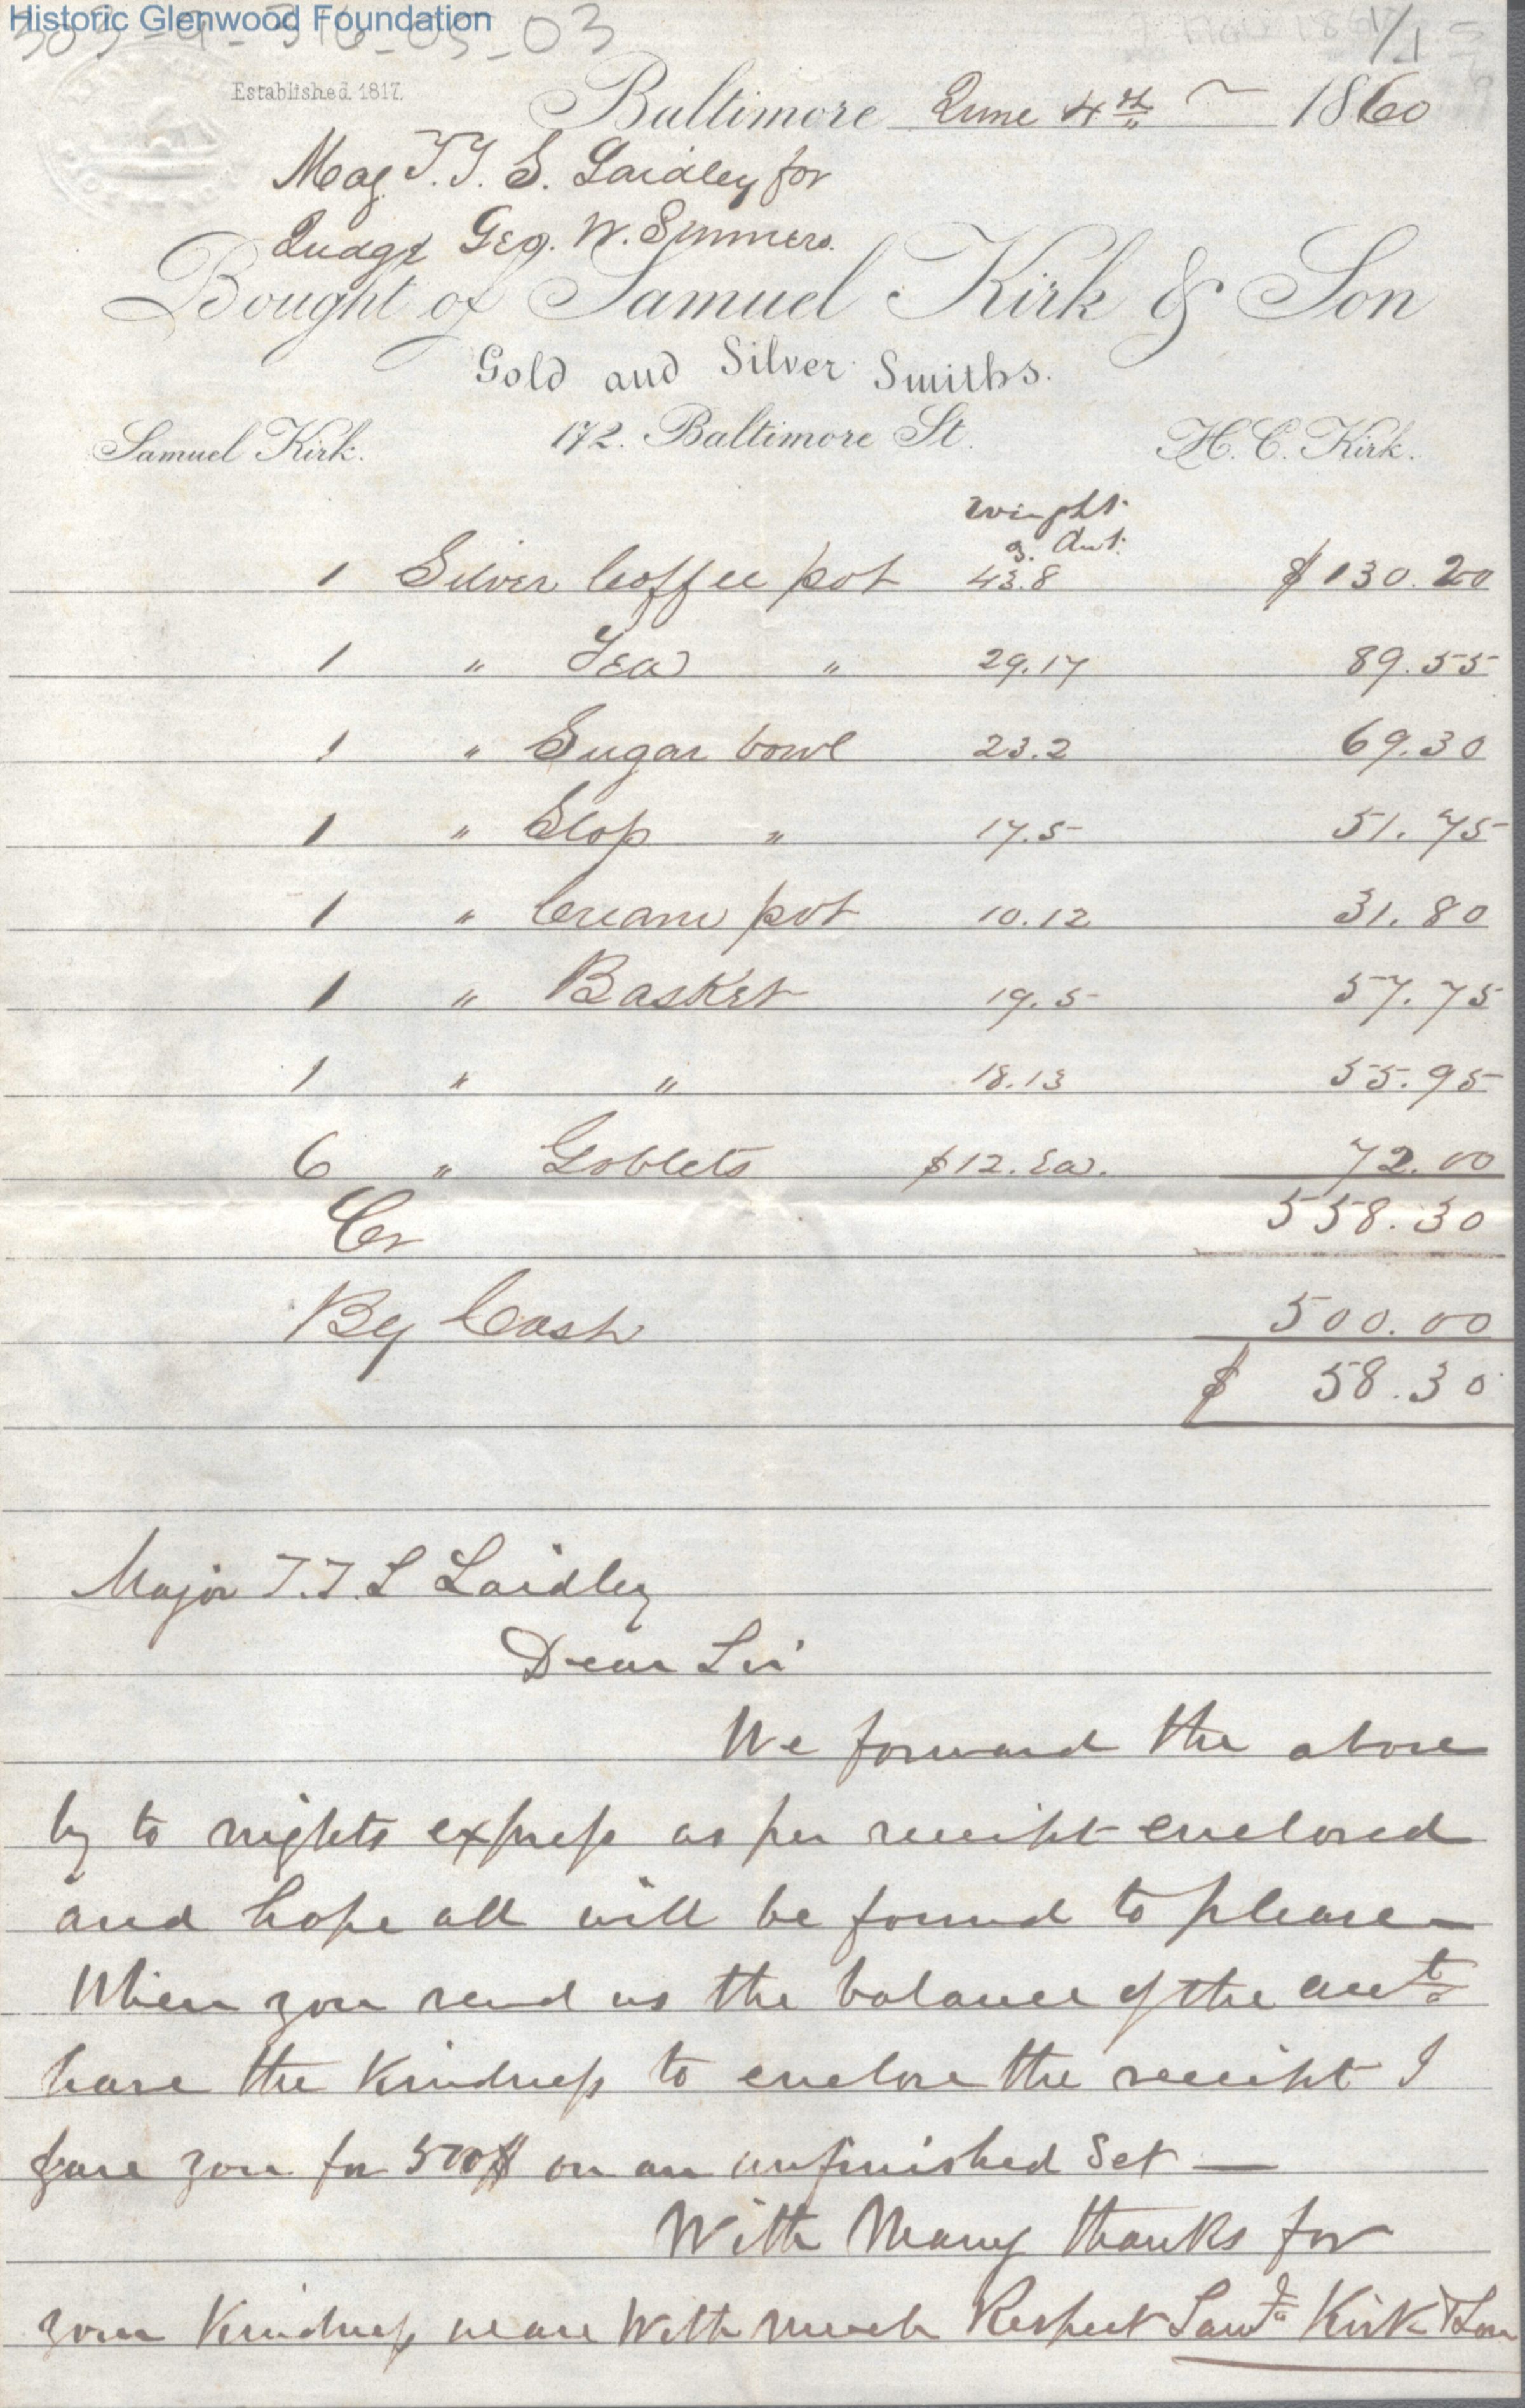 Historic Glenwood Foundation
Established 1817.
Baltimore June 4th 1860
Maj T. T. S. Laidley for
Judge Geo. W. Summers.
Bought of Samuel Kirk & Son
Gold and Silver Smiths.
Samuel Kirk. 172. Baltimore St. H. C. Kirk.
weight
oz. dwt.
1 Silver Coffee pot 43.8 $130.20
1 " Tea " 29.17 89.55
1 " Sugar bowl 23.2 69.30
1 " Slop " 17.5 51.75
1 " Cream pot 10.12 31.80
1 " Basket 19.5 57.75
1 " " 18.13 55.95
6 " Goblets $12. Ea. 72.00
558.30
Cr
By Cash 500.00
$ 58.30
Major T. T. S Laidley
Dear Sir
We forward the above
by to nights express as per receipt enclosed
and hope all will be found to please—
When you send us the balance of the amt
have the kindness to enclose the receipt I
gave you for 500$ on an unfinished Set —
With Many thanks for
your kindness we are With much Respect Saml Kirk & Son